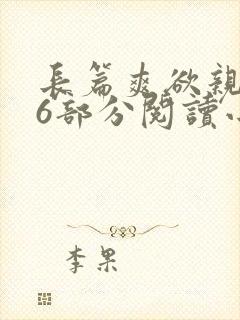 長篇爽欲親
6部分閱讀
李果